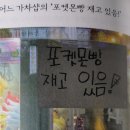 어느 가챠샵의 '포켓몬빵 재고 있음'
포켓몬빵
재고 있음!